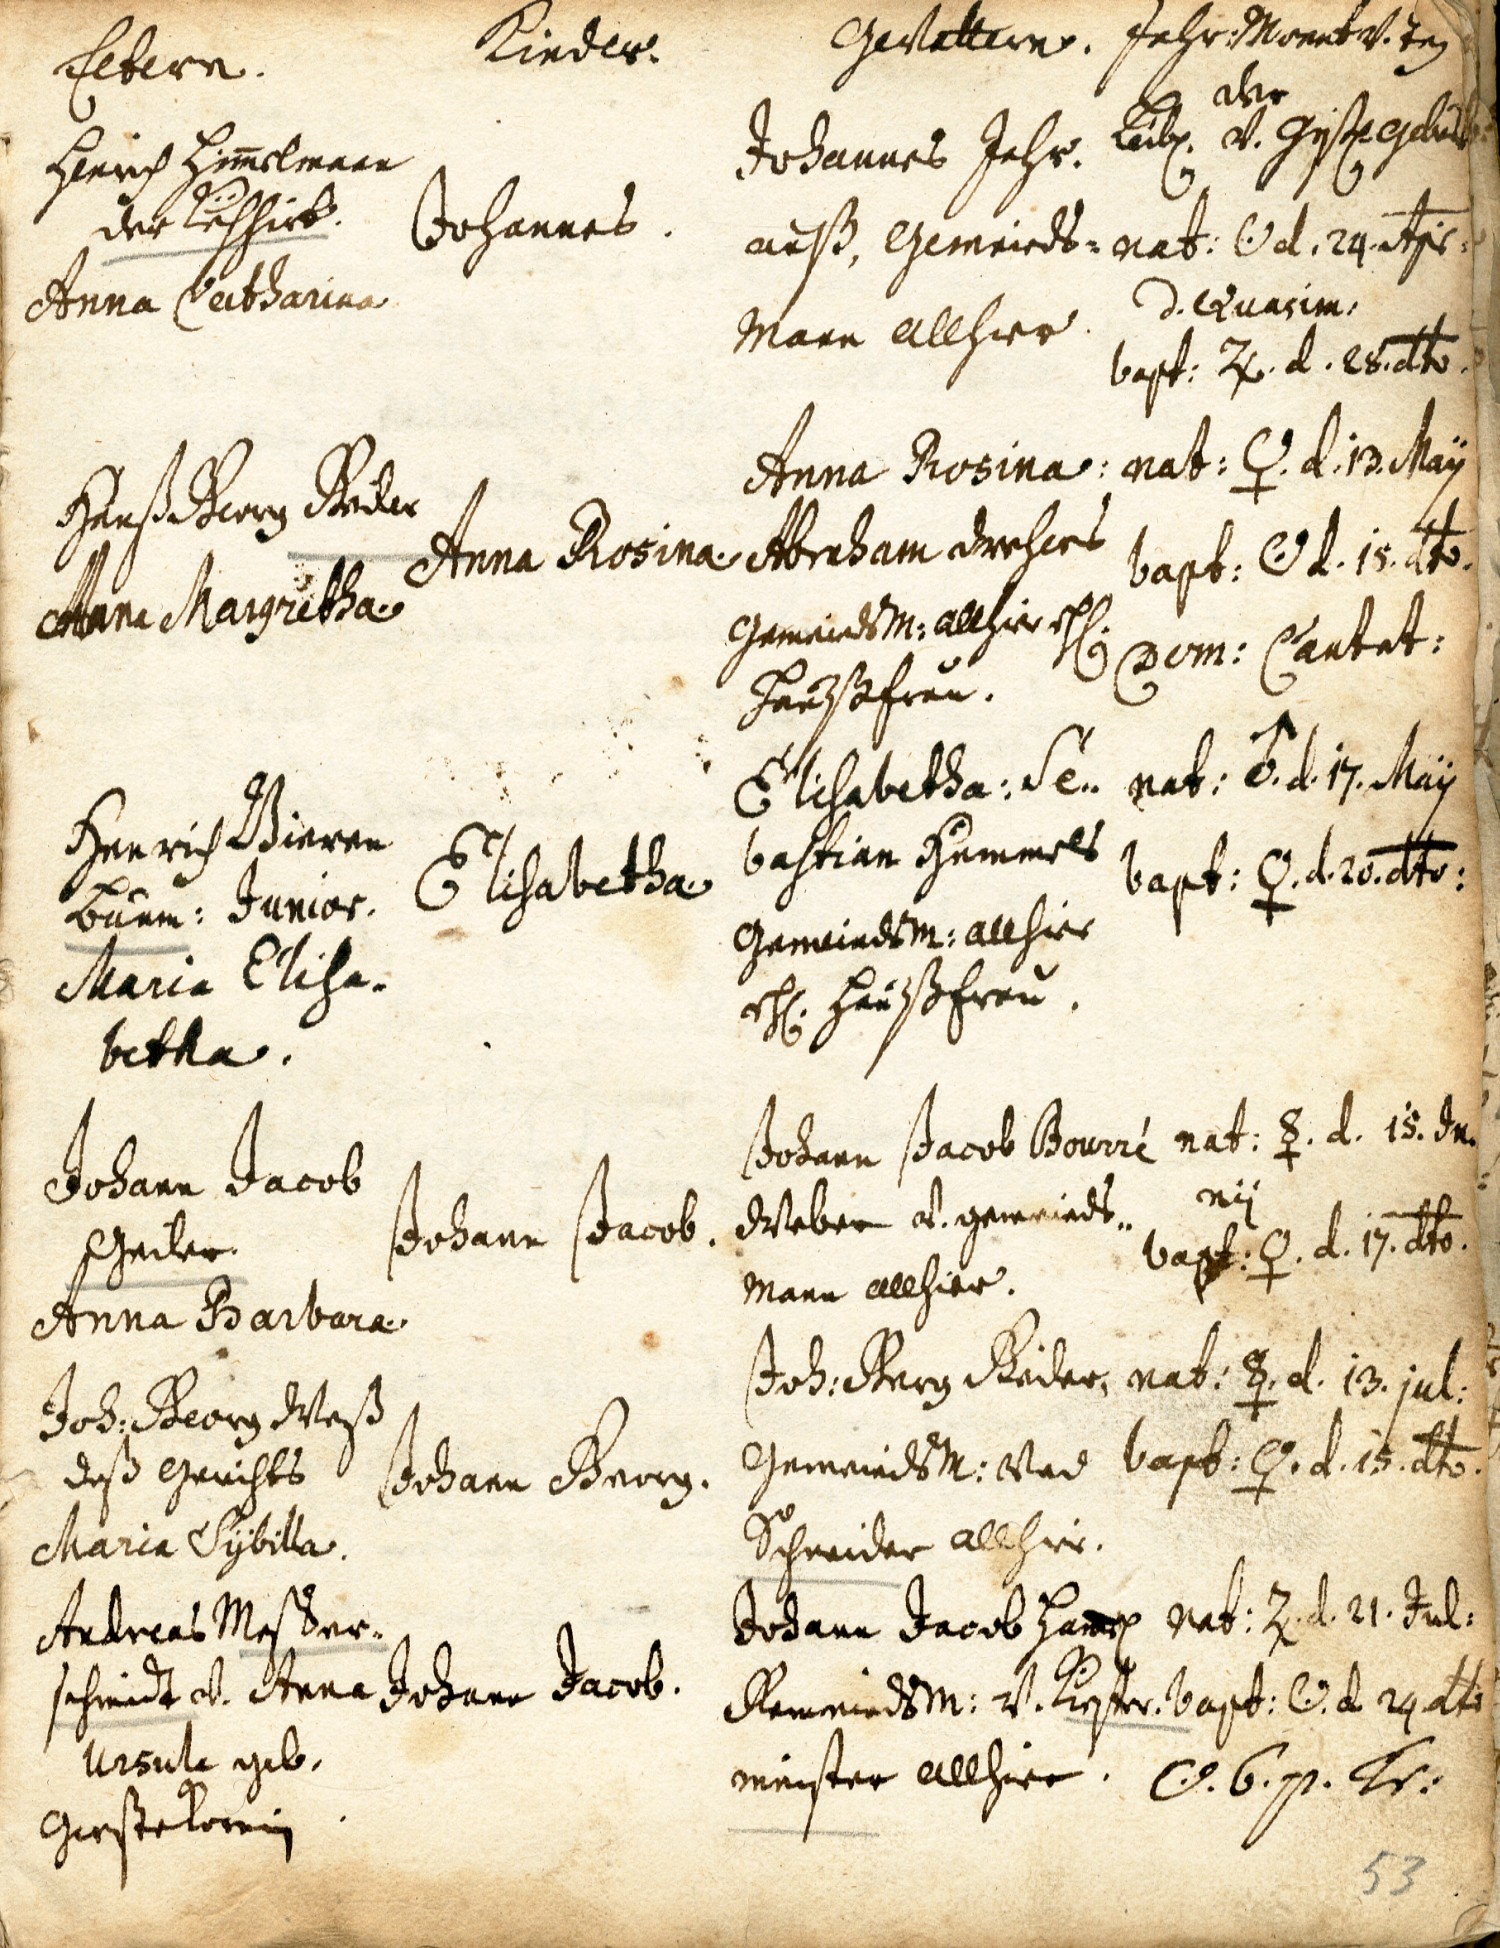 Eltern.
Kinder.
Gevattern. Jahr: Monat v. Tag
der
Leibl. v. Geistl. Gebuhrt
Henrich Himelmann
der Kühhirt.
Anna Catharina
Johannes.
Johannes Jahr.
auß, Gemeinds=
Mann allhier.
nat: ☉ d. 24. Apr:
D. Quasim:
bapt: ♃. d. 28. dto.
Hanß Georg Geiler
Anna Margretha
Anna Rosina.
Anna Rosina:
Abraham Drehers
GemeindsM: allhier ehl:
Haußfrau.
nat: ♀. d. 13. Maÿ
bapt: ☉ d. 15. dto.
Dom: Cantat:
Henrich Bieren
baum: Junior.
Maria Elisa-
betha.
Elisabetha
Elisabetha: Se=
bastian Hummels
GemeindsM: allhier
ehl. Haußfrau.
nat: ♂. d. 17. Maÿ
bapt: ♀. d. 20. dto:
Johann Jacob
Geiler.
Anna Barbara.
Johann Jacob.
Johann Jacob Bourré
Weber v. gemeinds=
Mann allhier.
nat: ☿. d. 15. Ju.
nij
bapt: ♀. d. 17. dto.
Joh: Georg Weß
deß Gerichts
Maria Sÿbilla.
Johann Georg.
Joh: Georg Geiler,
GemeindsM: und
Schneider allhier.
nat: ☿. d. 13. jul:
bapt: ♀. d. 15. dto.
Andreas Messer=
schmidt v. Anna
Ursula geb.
Gerstekornin
Johann Jacob.
Johann Jacob
GemeindsM: v.
meister allhier.
nat: ♃. d. 21. Jul:
bapt: ☉. d 24 dto
☉. 6. p. Tr:
53